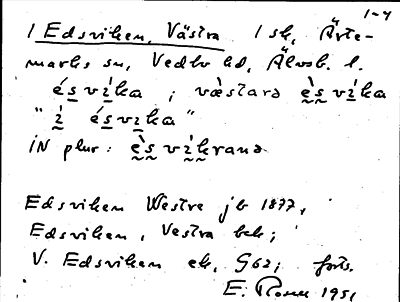 1-4
1 Edsviken, Västra 1 sk, Ärte-
marks sn, Vedbo hd, Älvsb. l.
é̀s̰vḭka ; væstarə ḛ̀s̰vḭka
" ḭ̀ és̰vḭka "
iN plur : ḛ̀s̰vḭ̀kranə
Edsviken Westre jb 1877,
Edsviken, Vestra bek;
V. Edsviken ek, G62; forts.
E. 1951